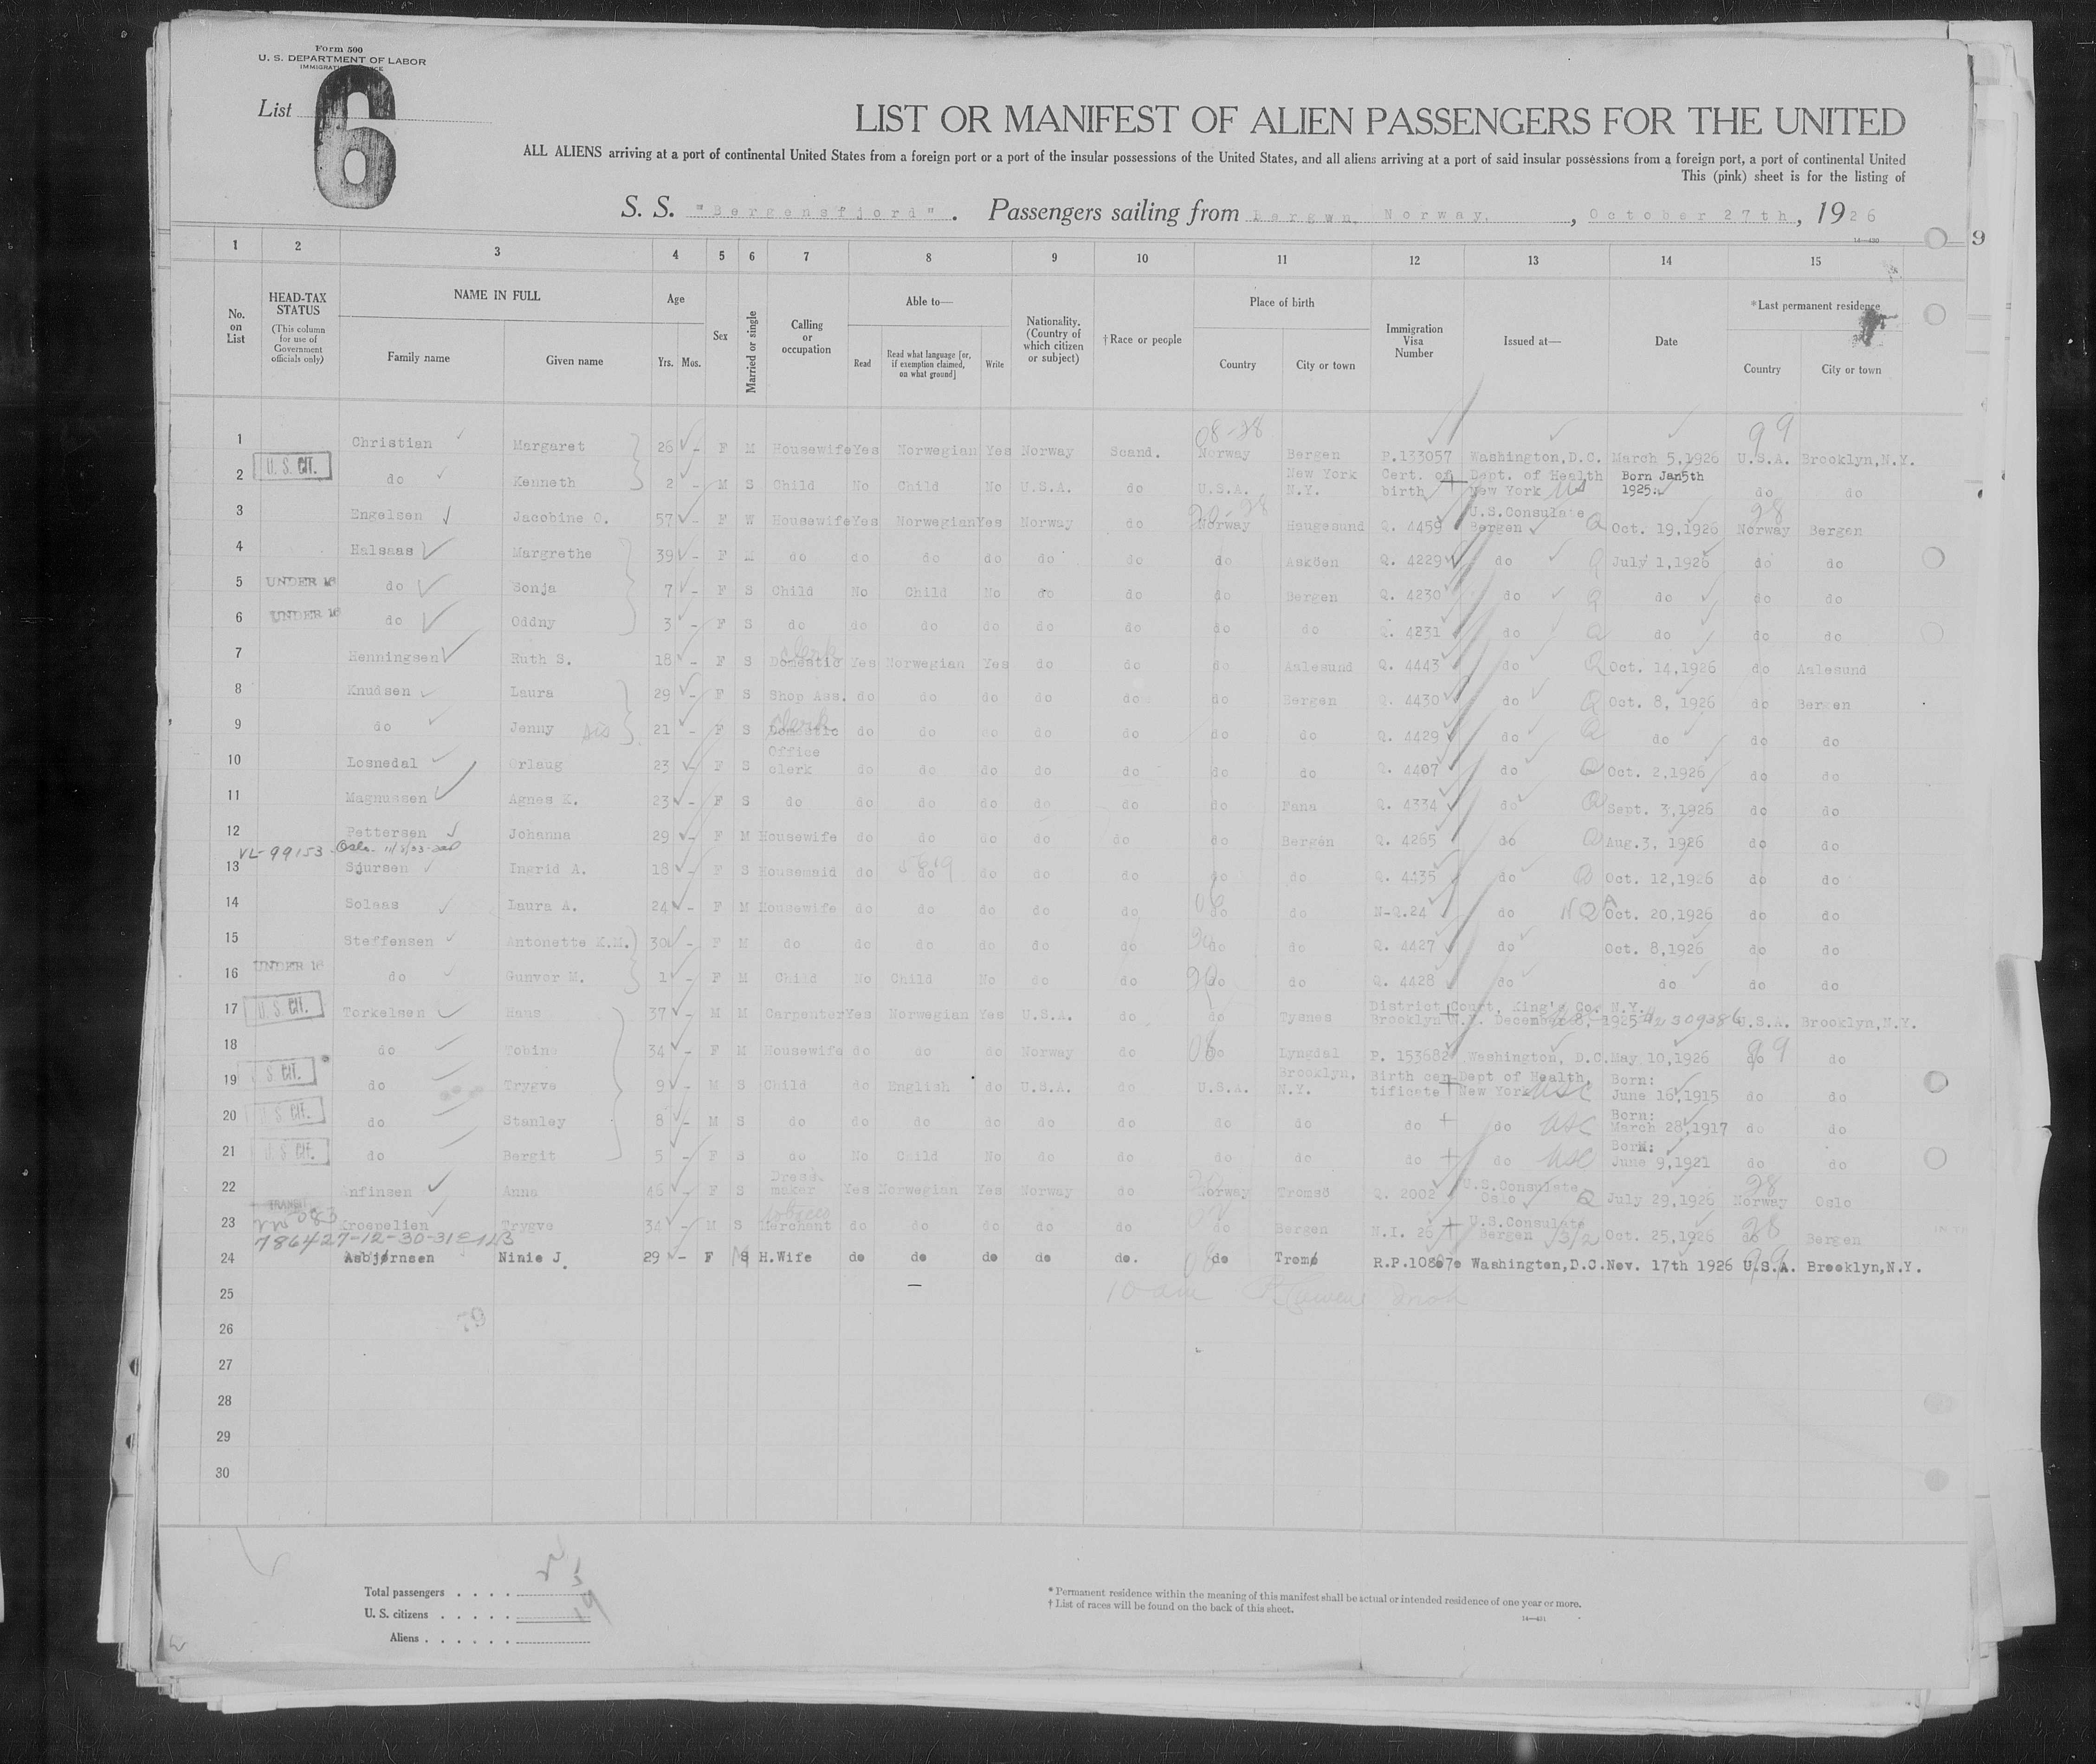 Form 500
U. S. DEPARTMENT OF LABOR
List 6
LIST OR MANIFEST OF ALIEN PASSENGERS FOR THE UNITED
ALL ALIENS arriving at a port of continental United States from a foreign port or a port of the insular possessions of the United States, and all aliens arriving at a port of said insular possessions from a foreign port, a port of continental United
This (pink) sheet is for the listing of
S. S. "Bergensfjord". Passengers sailing from Bergwn, Norway, October 27th, 1926
14—430
9
1 2 3 4 5 6 7 8 9 10 11 12 13 14 15
No. on List
HEAD-TAX STATUS
(This column for use of Government officials only)
NAME IN FULL
Family name Given name
Age
Yrs. Mos.
Sex
Married or single
Calling or occupation
Able to—
Read Read what language [or, if exemption claimed, on what ground] Write
Nationality. (Country of which citizen or subject)
†Race or people
Place of birth
Country City or town
Immigration Visa Number
Issued at—
Date
*Last permanent residence
Country City or town
08-28 99
1 Christian Margaret 26 - F M Housewife Yes Norwegian Yes Norway Scand. Norway Bergen P.133057 Washington,D.C. March 5,1926 U.S.A. Brooklyn,N.Y.
2 U.S. CIT. do Kenneth 2 - M S Child No Child No U.S.A. do U.S.A. New York N.Y. Cert. of birth Dept. of Health New York Born Jan5th 1925. do do
3 Engelsen Jacobine O. 57 - F W Housewife Yes Norwegian Yes Norway do Norway Haugesund Q. 4459 U.S.Consulate Bergen Q Oct. 19,1926 28 Norway Bergen
4 Halsaas Margrethe 39 - F M do do do do do do do Asköen Q. 4229 do Q July 1,1926 do do
5 UNDER 16 do Sonja 7 - F S Child No Child No do do do Bergen Q. 4230 do Q do do do
6 UNDER 16 do Oddny 3 - F S do do do do do do do do Q. 4231 do Q do do do
7 Henningsen Ruth S. 18 - F S clerk Domestic Yes Norwegian Yes do do do Aalesund Q. 4443 do Q Oct. 14,1926 do Aalesund
8 Knudsen Laura 29 - F S Shop Ass. do do do do do do Bergen Q. 4430 do Q Oct. 8, 1926 do Bergen
9 do Jenny sis 21 - F S clerk Domestic do do do do do do do Q. 4429 do Q do do do
10 Losnedal Orlaug 23 - F S Office clerk do do do do do do do Q. 4407 do Q Oct. 2,1926 do do
11 Magnussen Agnes K. 23 - F S do do do do do do do Fana Q. 4334 do Q Sept. 3,1926 do do
12 Pettersen Johanna 29 - F M Housewife do do do do do do Bergen Q. 4265 do Q Aug.3, 1926 do do
VL-99153
13 Sjursen Ingrid A. 18 - F S Housemaid do do do do do do do Q. 4435 do Q Oct. 12,1926 do do
14 Solaas Laura A. 24 - F M Housewife do do do do do do do N-Q.24 do NQ Oct. 20,1926 do do
15 Steffensen Antonette K.M. 30 - F M do do do do do do do do Q. 4427 do Oct. 8,1926 do do
16 UNDER 16 do Gunvor M. 1 - F M Child No Child No do do do do Q. 4428 do do do do
17 U.S. CIT. Torkelsen Hans 37 - M M Carpenter Yes Norwegian Yes U.S.A. do do Tysnes District Court, King's Co. N.Y. Brooklyn N.Y. December 8, 1925 U.S.A. Brooklyn,N.Y.
18 do Tobine 34 - F M Housewife do do do Norway do do Lyngdal P. 153682 Washington, D.C. May. 10,1926 99 do do
19 S. CIT. do Trygve 9 - M S Child do English do U.S.A. do U.S.A. Brooklyn, N.Y. Birth cer- tificate Dept of Health, New York USC Born: June 16,1915 do do
20 U.S. CIT. do Stanley 8 - M S do do do do do do do do do do USC Born: March 28,1917 do do
21 U.S. CIT. do Bergit 5 - F S do No Child No do do do do do do USC Born: June 9,1921 do do
22 Anfinsen Anna 46 - F S Dress- maker Yes Norwegian Yes Norway do Norway Tromsö Q. 2002 U.S.Consulate Oslo Q July 29,1926 28 Norway Oslo
TRANSIT
23 Kroepelien Trygve 34 - M S tobacco Merchant do do do do do do Bergen N.I. 26 U.S.Consulate Bergen 3/2 Oct. 25,1926 28 do Bergen
24 Asbjørnsen Ninie J. 29 - F M H.Wife do do do do do. do Tromø R.P.108070 Washington,D.C. Nov. 17th 1926 U.S.A. Brooklyn,N.Y.
25
26
27
28
29
30
Total passengers
U. S. citizens
Aliens
* Permanent residence within the meaning of this manifest shall be actual or intended residence of one year or more.
† List of races will be found on the back of this sheet.
14—431